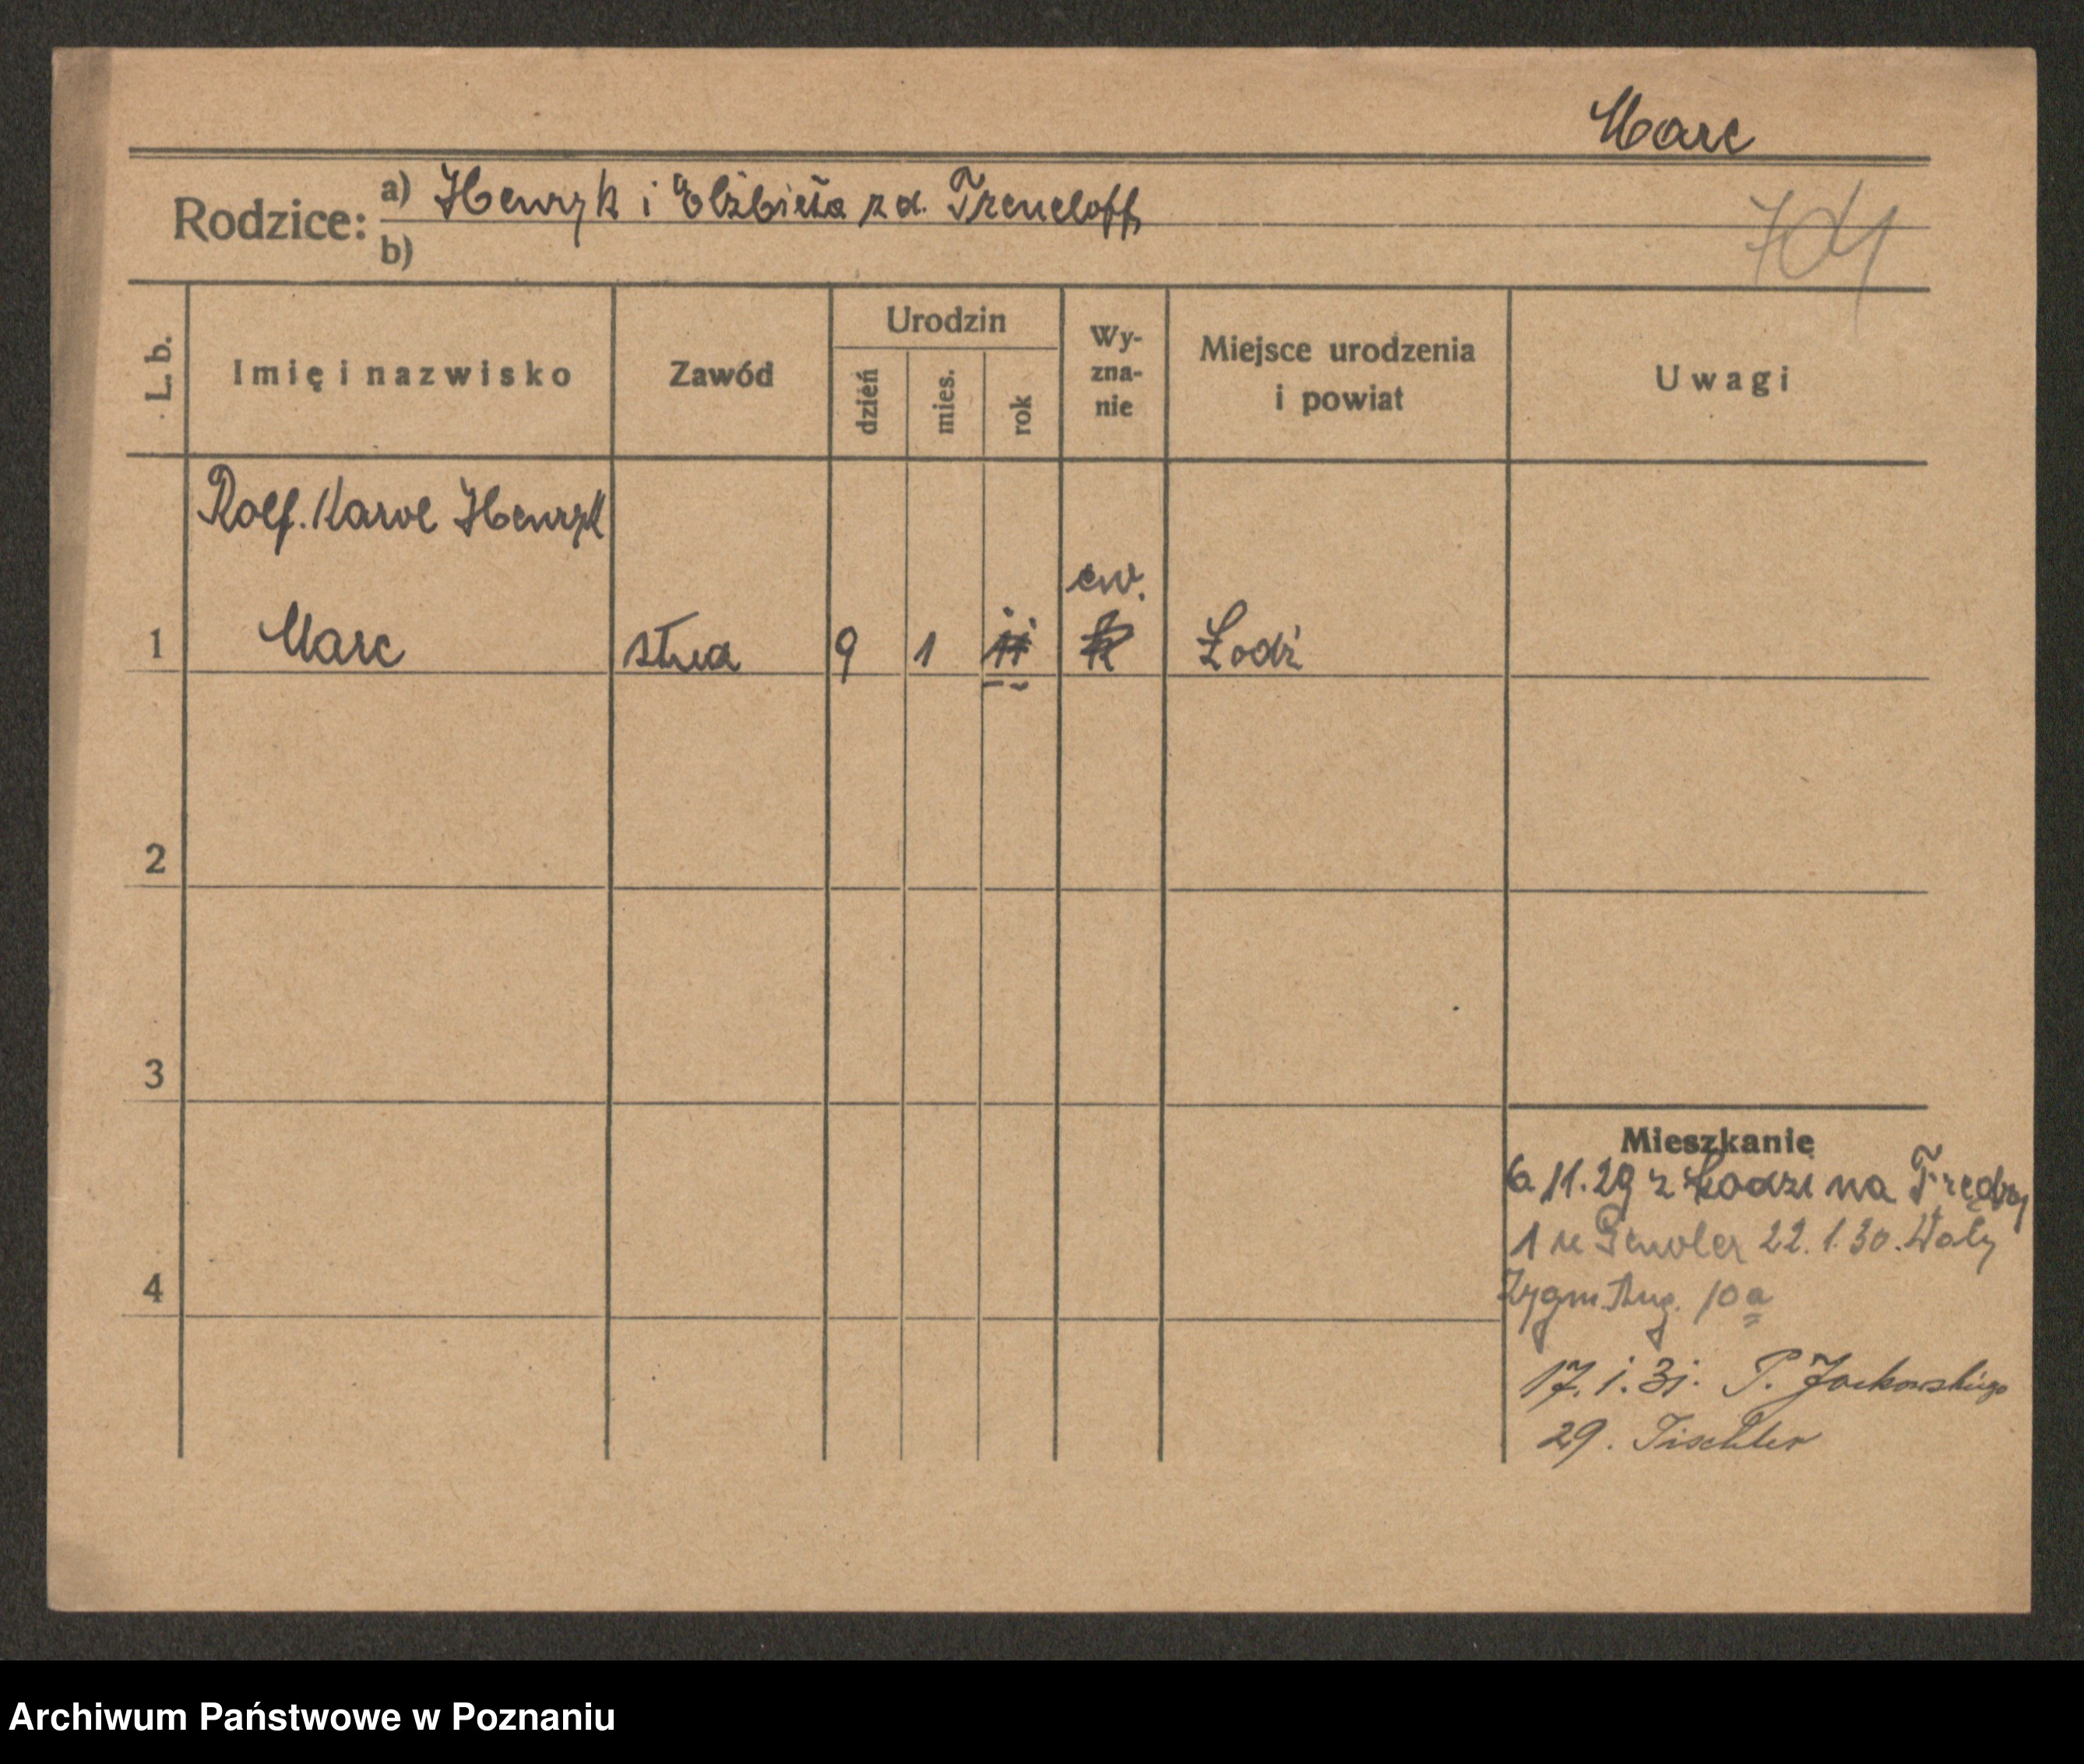 Marc
Rodzice: a) Henryk i Elżbieta z d. Treneloff
b)
704
L. b.
Imię i nazwisko
Zawód
Urodzin
dzień
mies.
rok
Wy-
zna-
nie
Miejsce urodzenia
i powiat
Uwagi
Rolf. Karol Henryk
ew.
1 Marc 9 1 11 Łodź
2
3
4
Mieszkanie
6 11.29 z Łodzi na Fredry
1 u 22.1.30. Wały
Zygm. Aug. 10a
17. i. 3i. P. Jackowskiego
29. Tischler
Archiwum Państwowe w Poznaniu